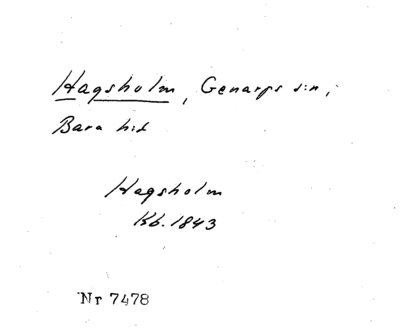 Hagsholm, Genarps sn,
Bara hd
Hagsholm
Kb. 1843
Nr 7478